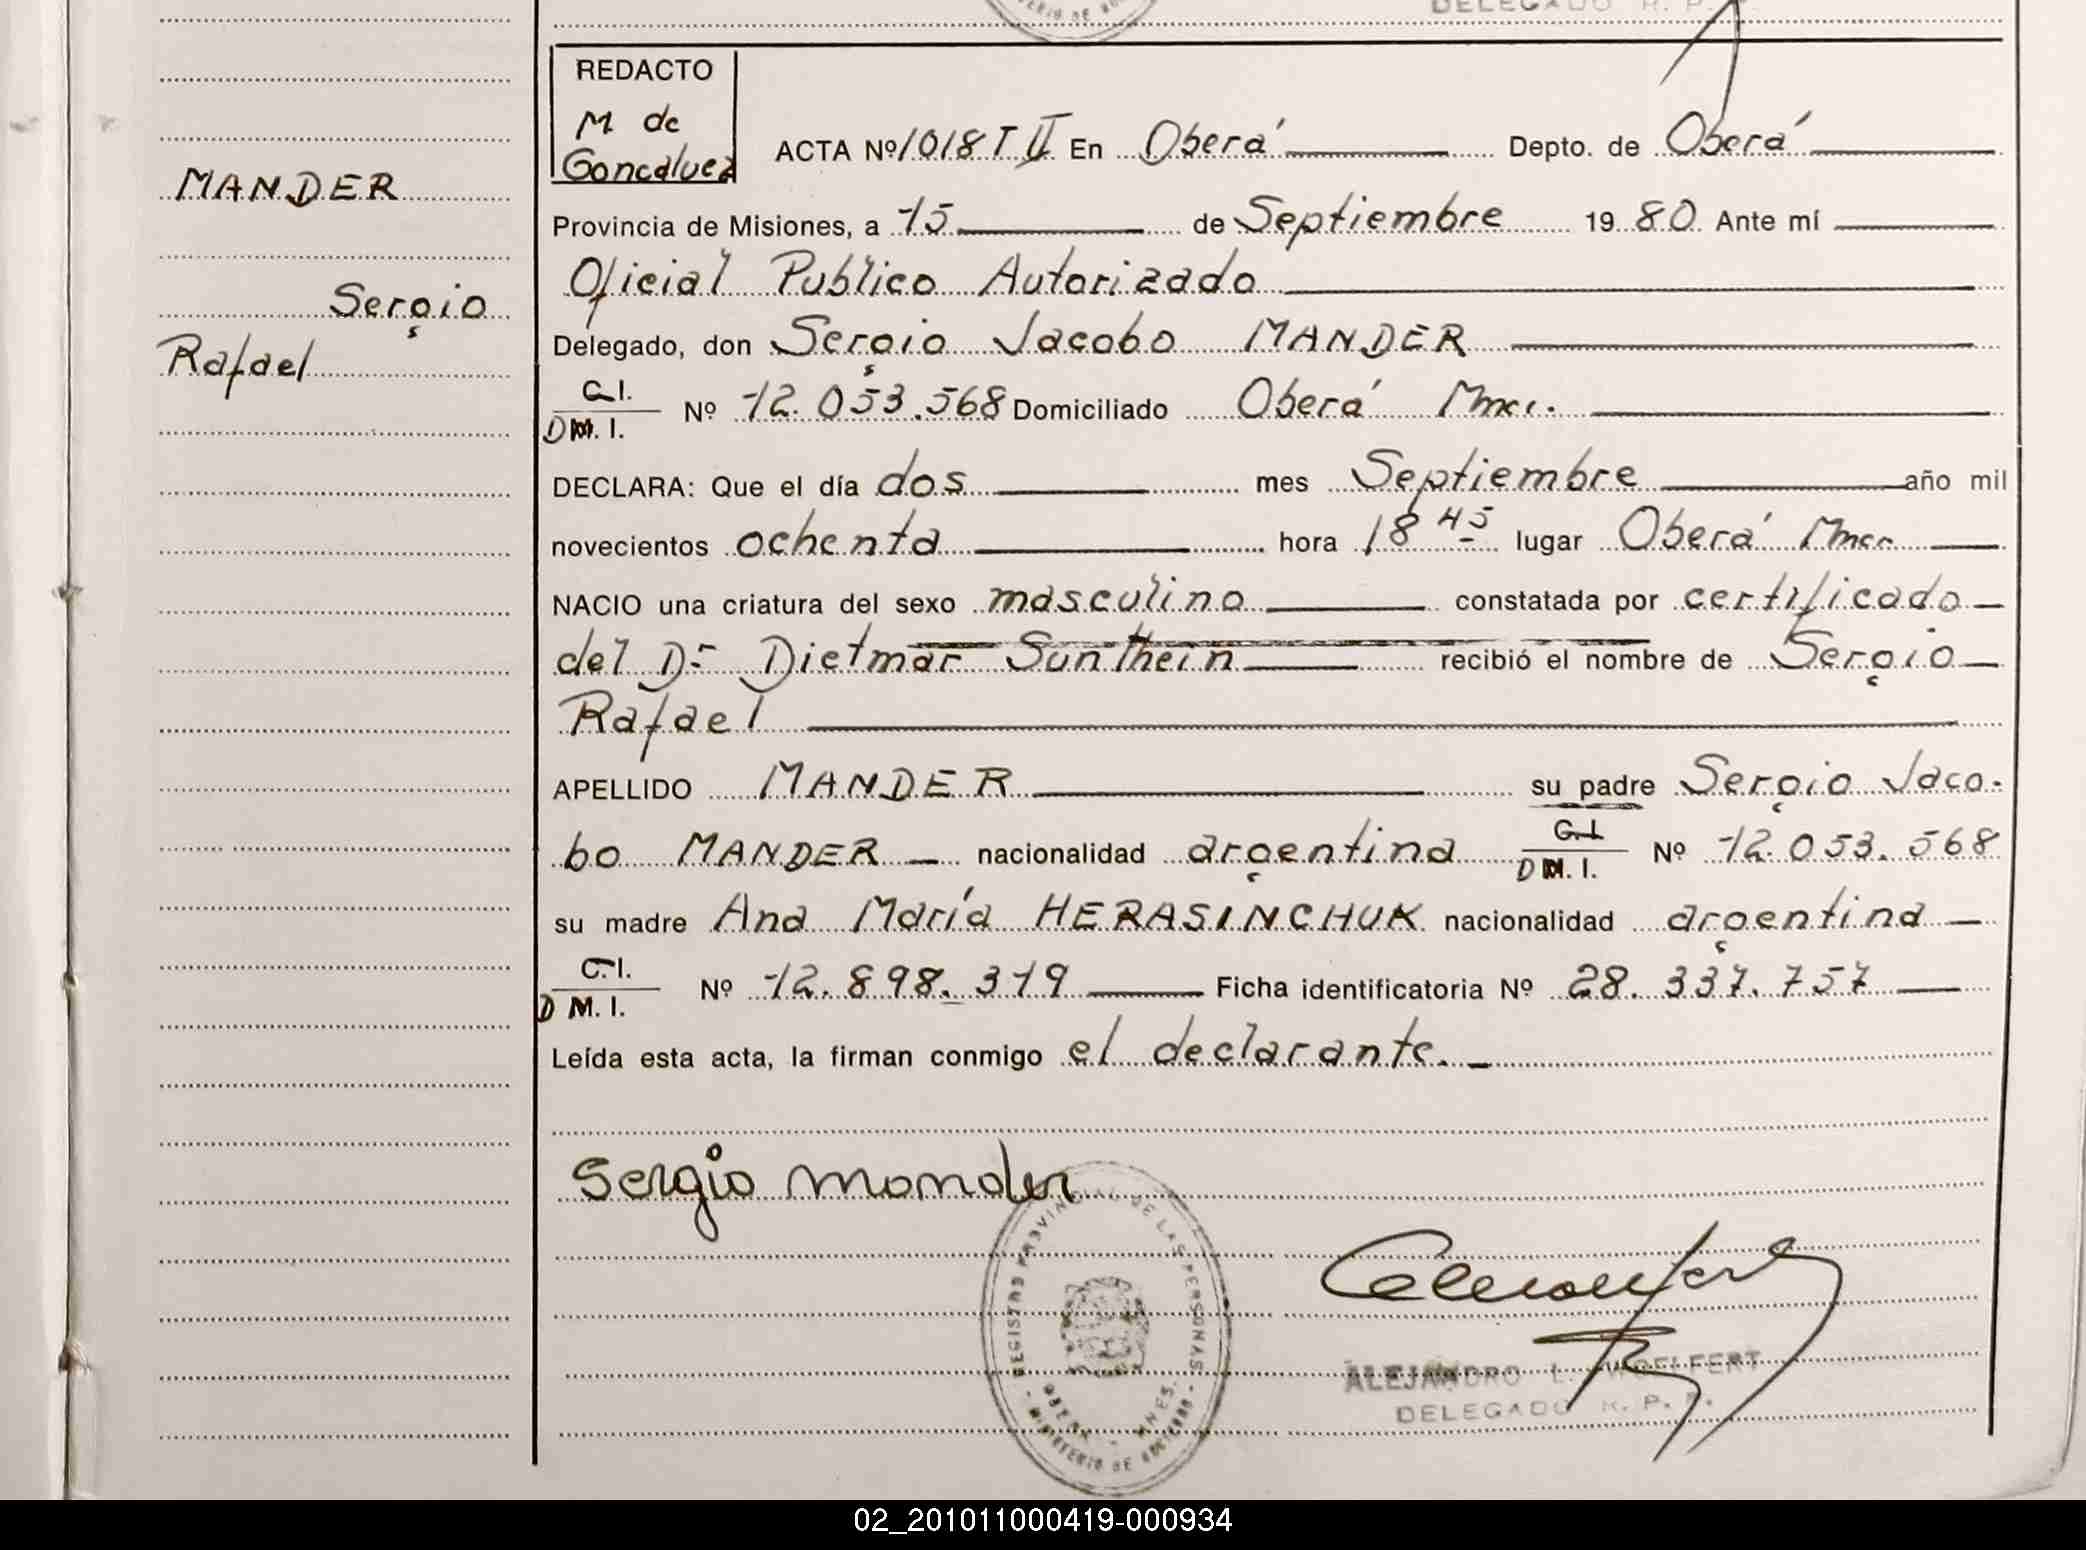 DELEGADO R. P.
REDACTO
M de
Goncalvez
ACTA Nº 1018 T II En Oberá Depto. de Oberá
MANDER
Provincia de Misiones, a 15 de Septiembre 19 80 Ante mí
Oficial Publico Autorizado
Sergio
Rafael
Delegado, don Sergio Jacobo MANDER
C.I.
D M.I. Nº 12.053.568 Domiciliado Oberá Mnes.
DECLARA: Que el día dos mes Septiembre año mil
novecientos ochenta hora 18 45 lugar Oberá Mnes
NACIO una criatura del sexo masculino constatada por certificado
del Dr Dietmar Sunthein recibió el nombre de Sergio
Rafael
APELLIDO MANDER su padre Sergio Jaco-
bo MANDER nacionalidad argentina C.I. D M.I. Nº 12.053.568
su madre Ana María HERASINCHUK nacionalidad argentina
C.I.
D M.I. Nº 12.898.319 Ficha identificatoria Nº 28.337.757
Leída esta acta, la firman conmigo el declarante.
Sergio Mander
REGISTRO PROVINCIAL DE LAS PERSONAS
OBERA - MNES.
MINISTERIO DE GOBIERNO
ALEJANDRO L. WOELFERT
DELEGADO R. P. P.
02_201011000419-000934